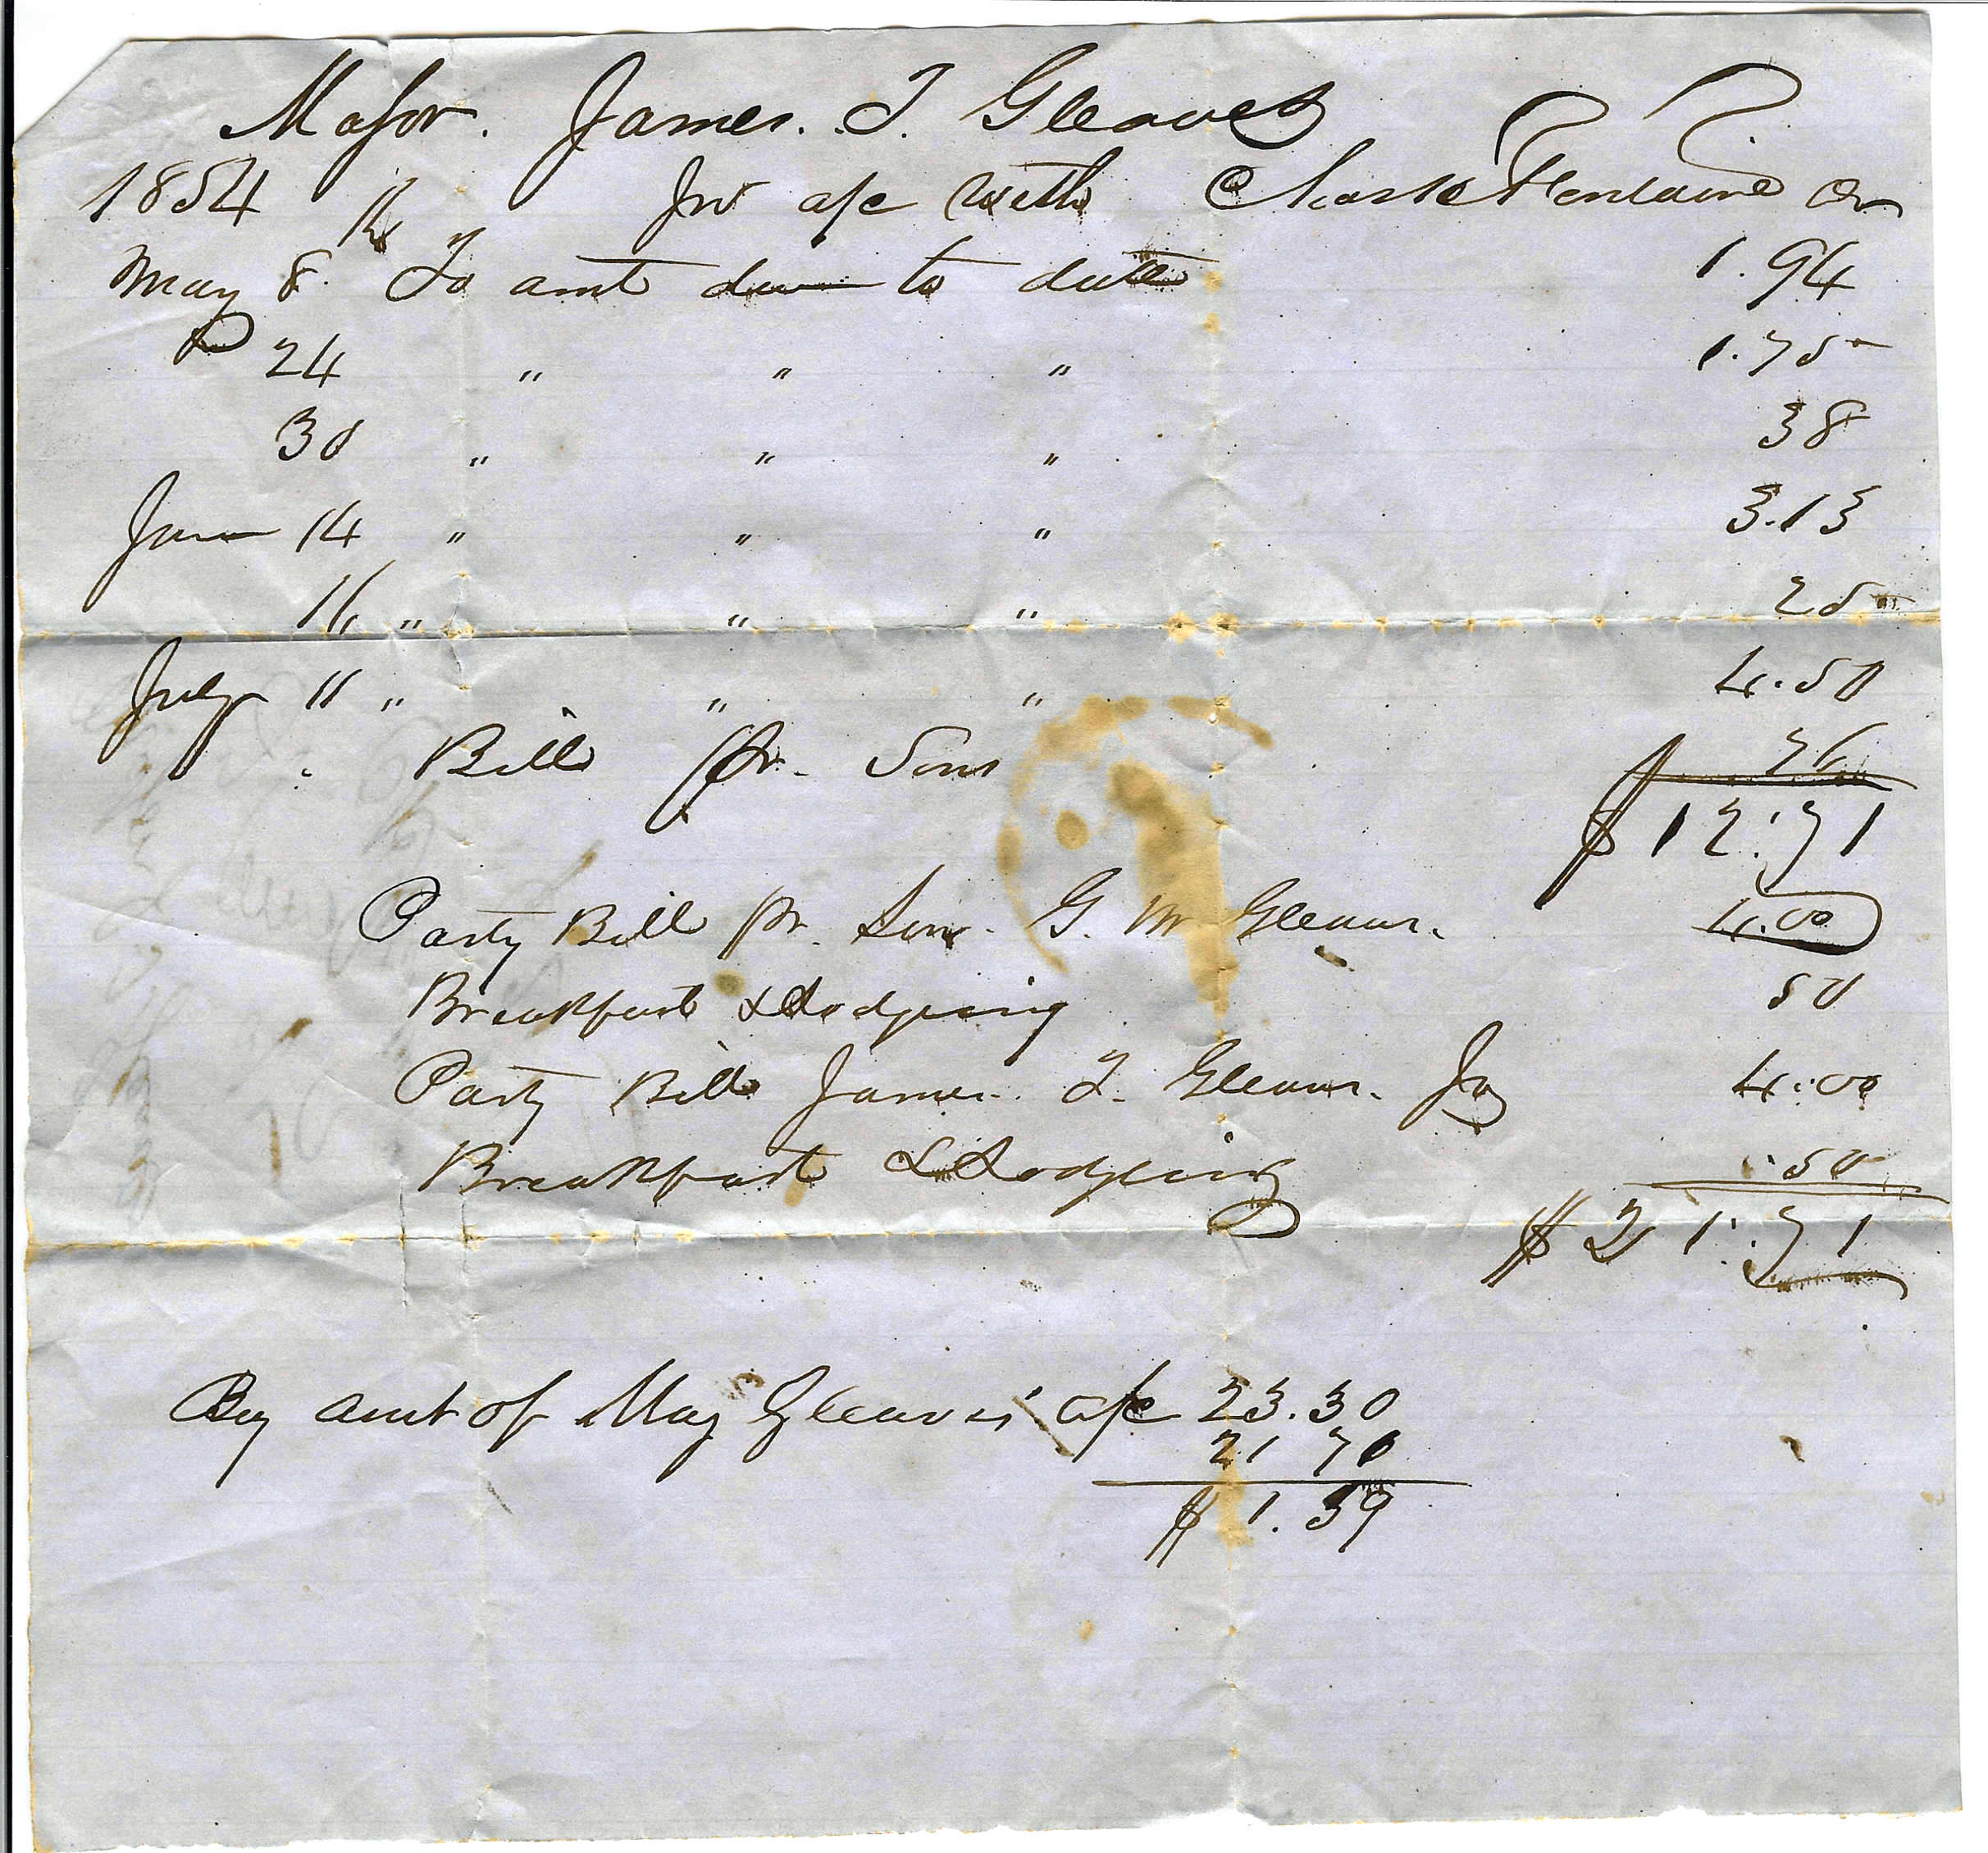 Major. James. T. Gleaves
1854 In a/c with Chas Fontaine Cr
May 8 To amt due to date 1.94
24 " " " 1.75
30 " " " 38
June 14 " " " 3.13
16 " " " 25
July 11 " " " 4.50
" Bill pr. Sons 76
$12.71
Party Bill pr. Son. G. M Gleaves. 4.00
Breakfast & Lodging 50
Party Bill James. T. Gleaves. Jr 4.00
Breakfast & Lodging .50
$21.71
By amt of Maj Gleaves' a/c 23.30
21 70
$1.59